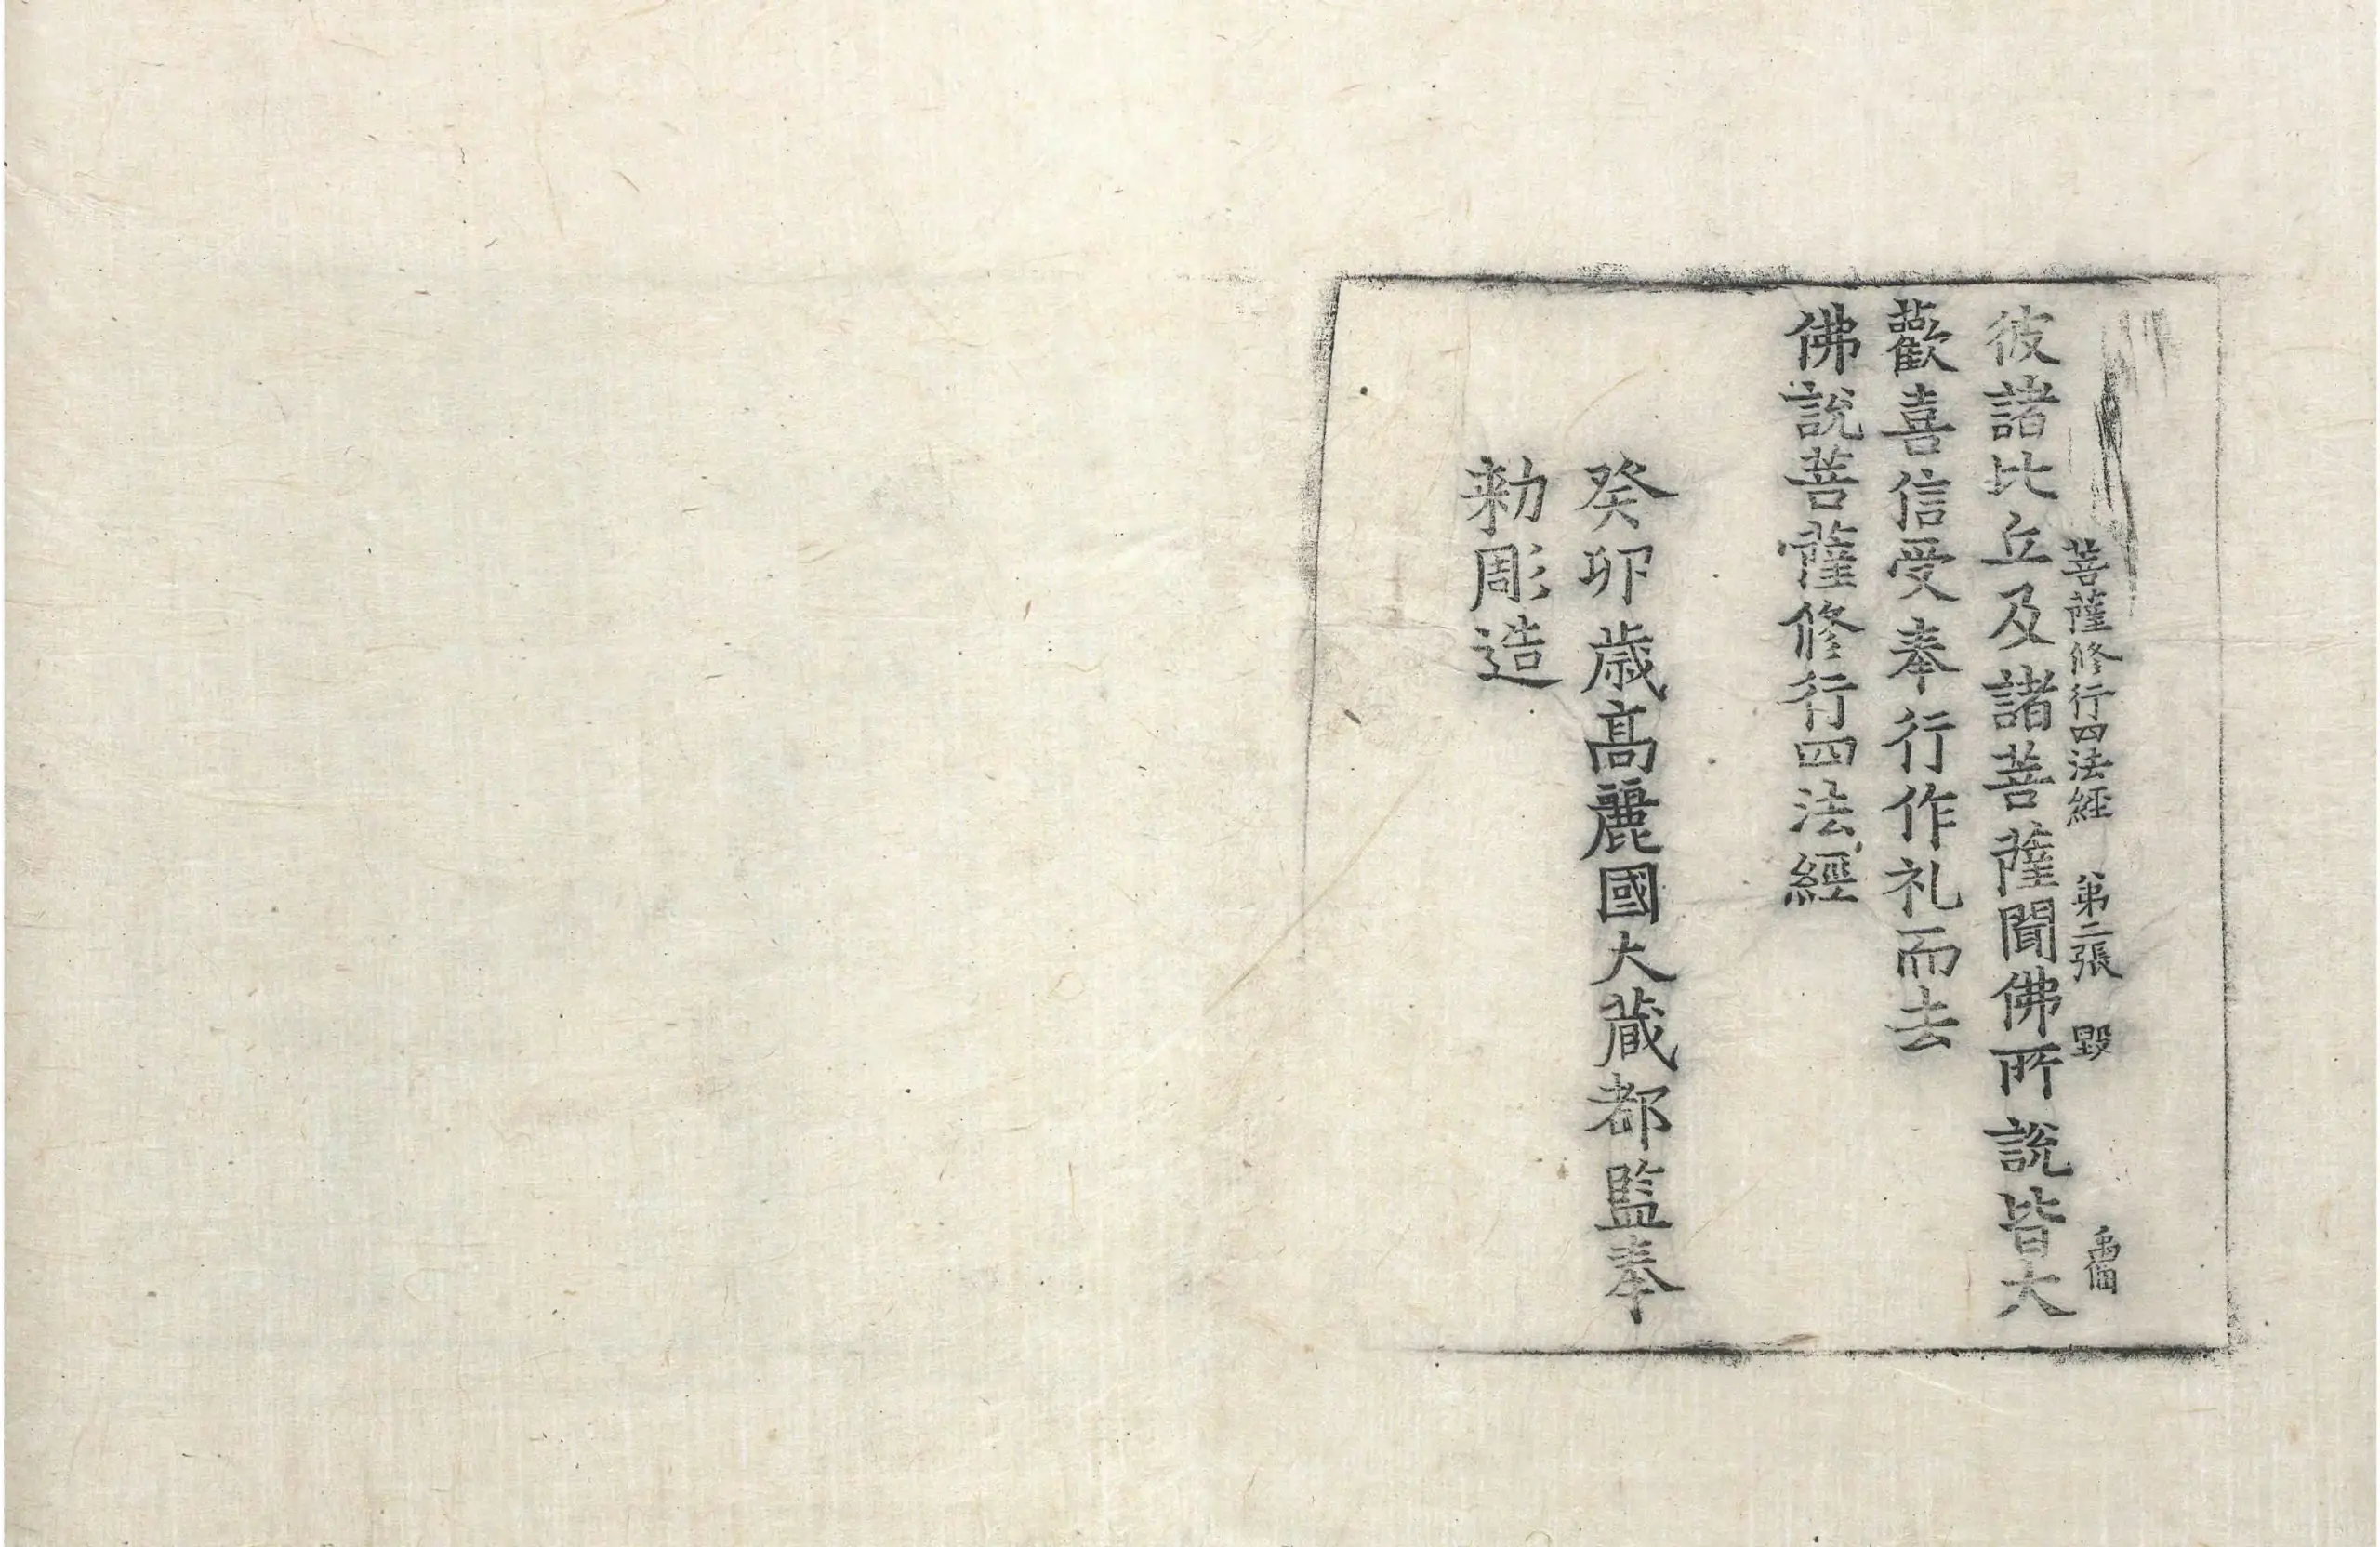 菩薩修行四法經 第二張 毀
彼諸比丘及諸菩薩聞佛所說皆大
歡喜信受奉行作礼而去
佛說菩薩修行四法經
癸卯歲高麗國大藏都監奉
勑彫造